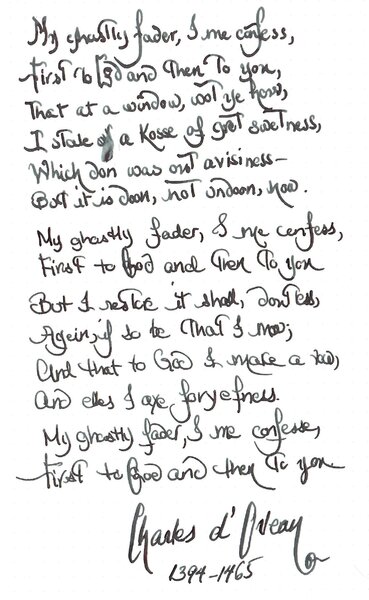 My ghastly fader, I me confess,
First to God and then to you,
That at a window, wot ye how,
I stale a Kosse of gret swetness,
Which don was out avisiness—
But it is doon, not undoon, now.
My ghastly fader, I me confess,
First to God and then to you
But I restore it shall, doutless,
Agein, if so be that I mow;
And that to God I make a vow,
And elles I axe foryefness.
My ghastly fader, I me confesse,
First to God and then to you
Charles d'Orleans
1394-1465